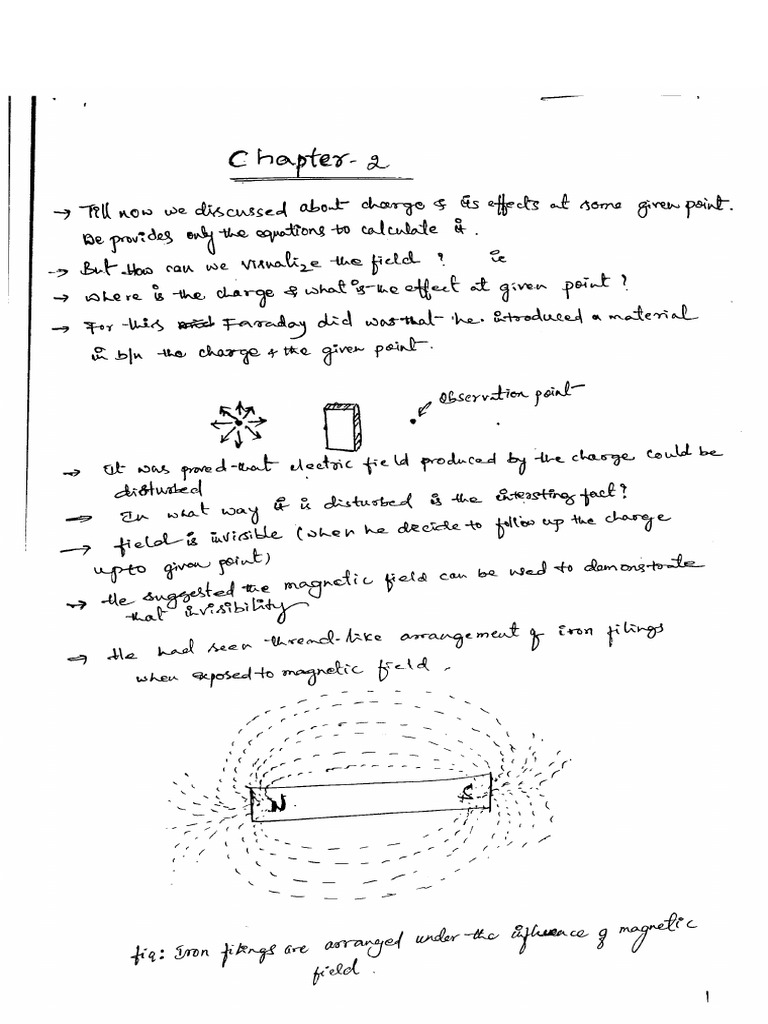 Chapter-2
→ Till now we discussed about charge & its effects at some given point.
We provides only the equations to calculate it.
→ But How can we visualize the field ? ie
→ where is the charge & what is the effect at given point ?
→ For this Faraday did was that he introduced a material
in b/n the charge & the given point.
observation point
→ It was proved that electric field produced by the charge could be
disturbed
→ In what way it is disturbed is the intersting fact?
→ field is invisible (when he decide to follow up the charge
upto given point)
→ He suggested the magnetic field can be used to demonstrate
that invisibility
→ He had seen thread-like arrangement of iron filings
when exposed to magnetic field.
N S
fig: Iron filings are arranged under the influence of magnetic
field.
1